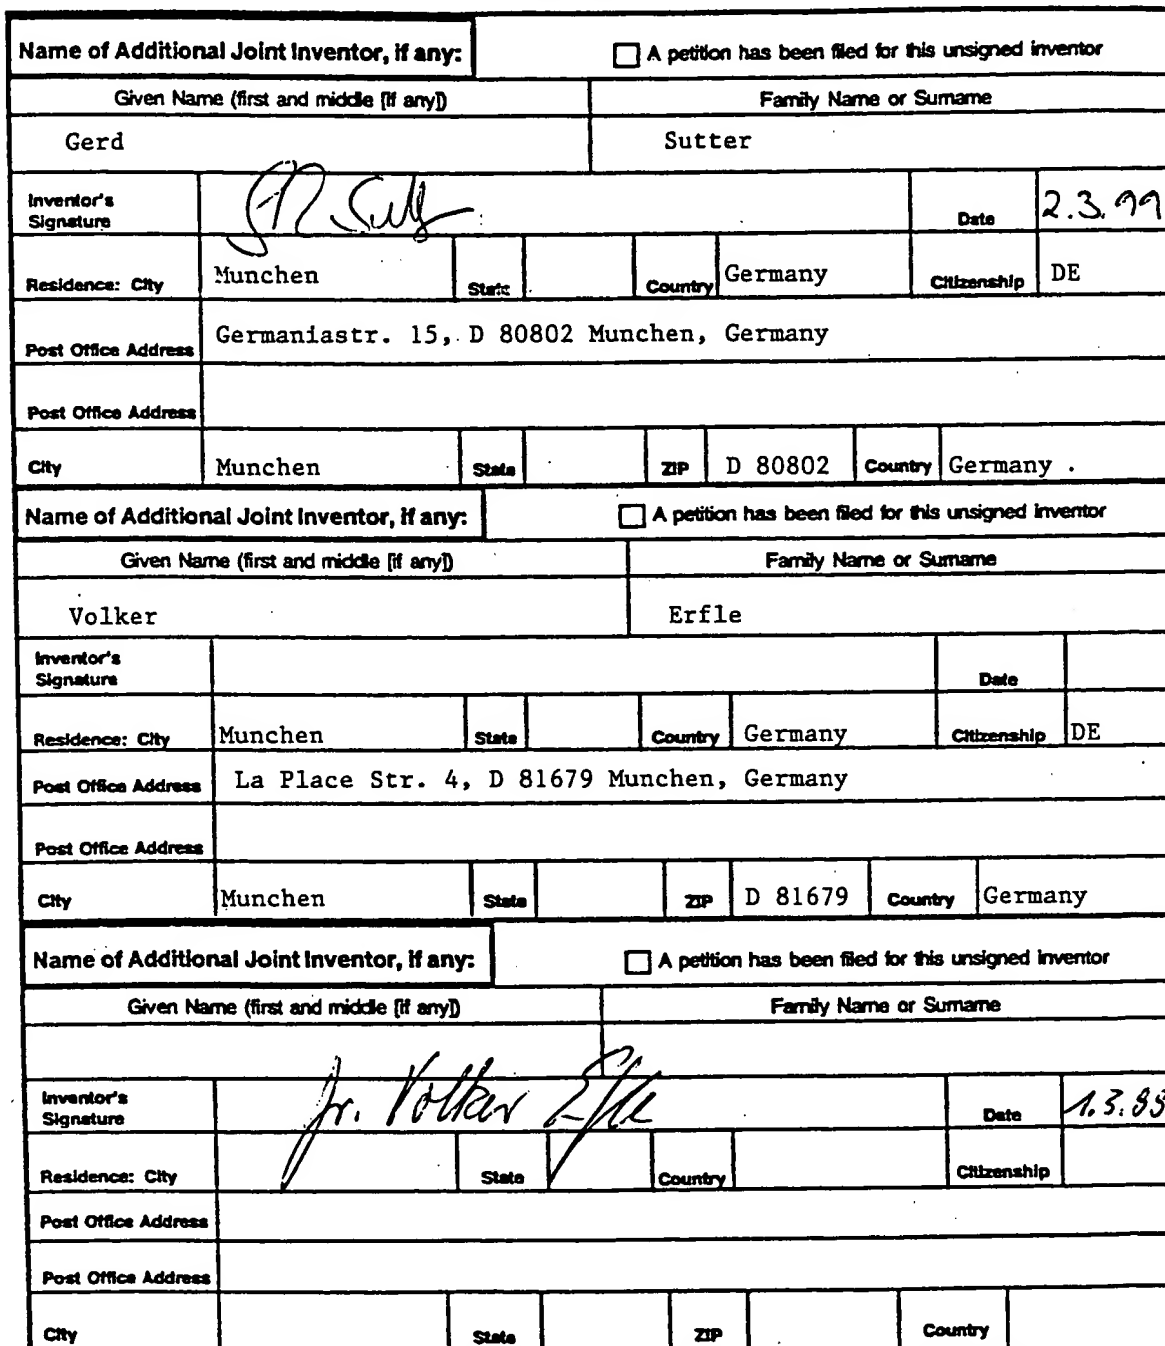 Name of Additional Joint Inventor, if any: ☐ A petition has been filed for this unsigned inventor
Given Name (first and middle [if any]) Family Name or Surname
Gerd Sutter
Inventor's Signature Date 2.3.99
Residence: City Munchen State Country Germany Citizenship DE
Post Office Address Germaniastr. 15, D 80802 Munchen, Germany
Post Office Address
City Munchen State ZIP D 80802 Country Germany
Name of Additional Joint Inventor, if any: ☐ A petition has been filed for this unsigned inventor
Given Name (first and middle [if any]) Family Name or Surname
Volker Erfle
Inventor's Signature Date
Residence: City Munchen State Country Germany Citizenship DE
Post Office Address La Place Str. 4, D 81679 Munchen, Germany
Post Office Address
City Munchen State ZIP D 81679 Country Germany
Name of Additional Joint Inventor, if any: ☐ A petition has been filed for this unsigned inventor
Given Name (first and middle [if any]) Family Name or Surname
Inventor's Signature Volker Erfle Date 1.3.99
Residence: City State Country Citizenship
Post Office Address
Post Office Address
City State ZIP Country